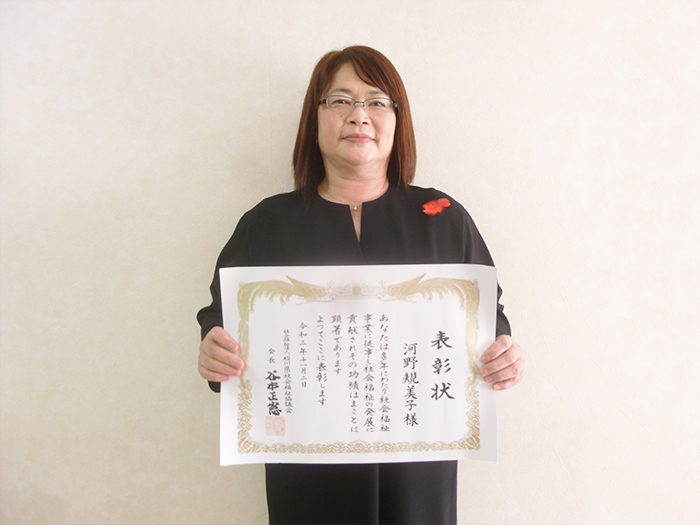 表彰状
河野規美子様
あなたは多年にわたり社会福祉
事業に従事し社会福祉の発展に
貢献されその功績はまことに
顕著であります
よつてここに表彰します
令和三年十一月二日
社会福祉法人 石川県社会福祉協議会
会長 谷本正憲